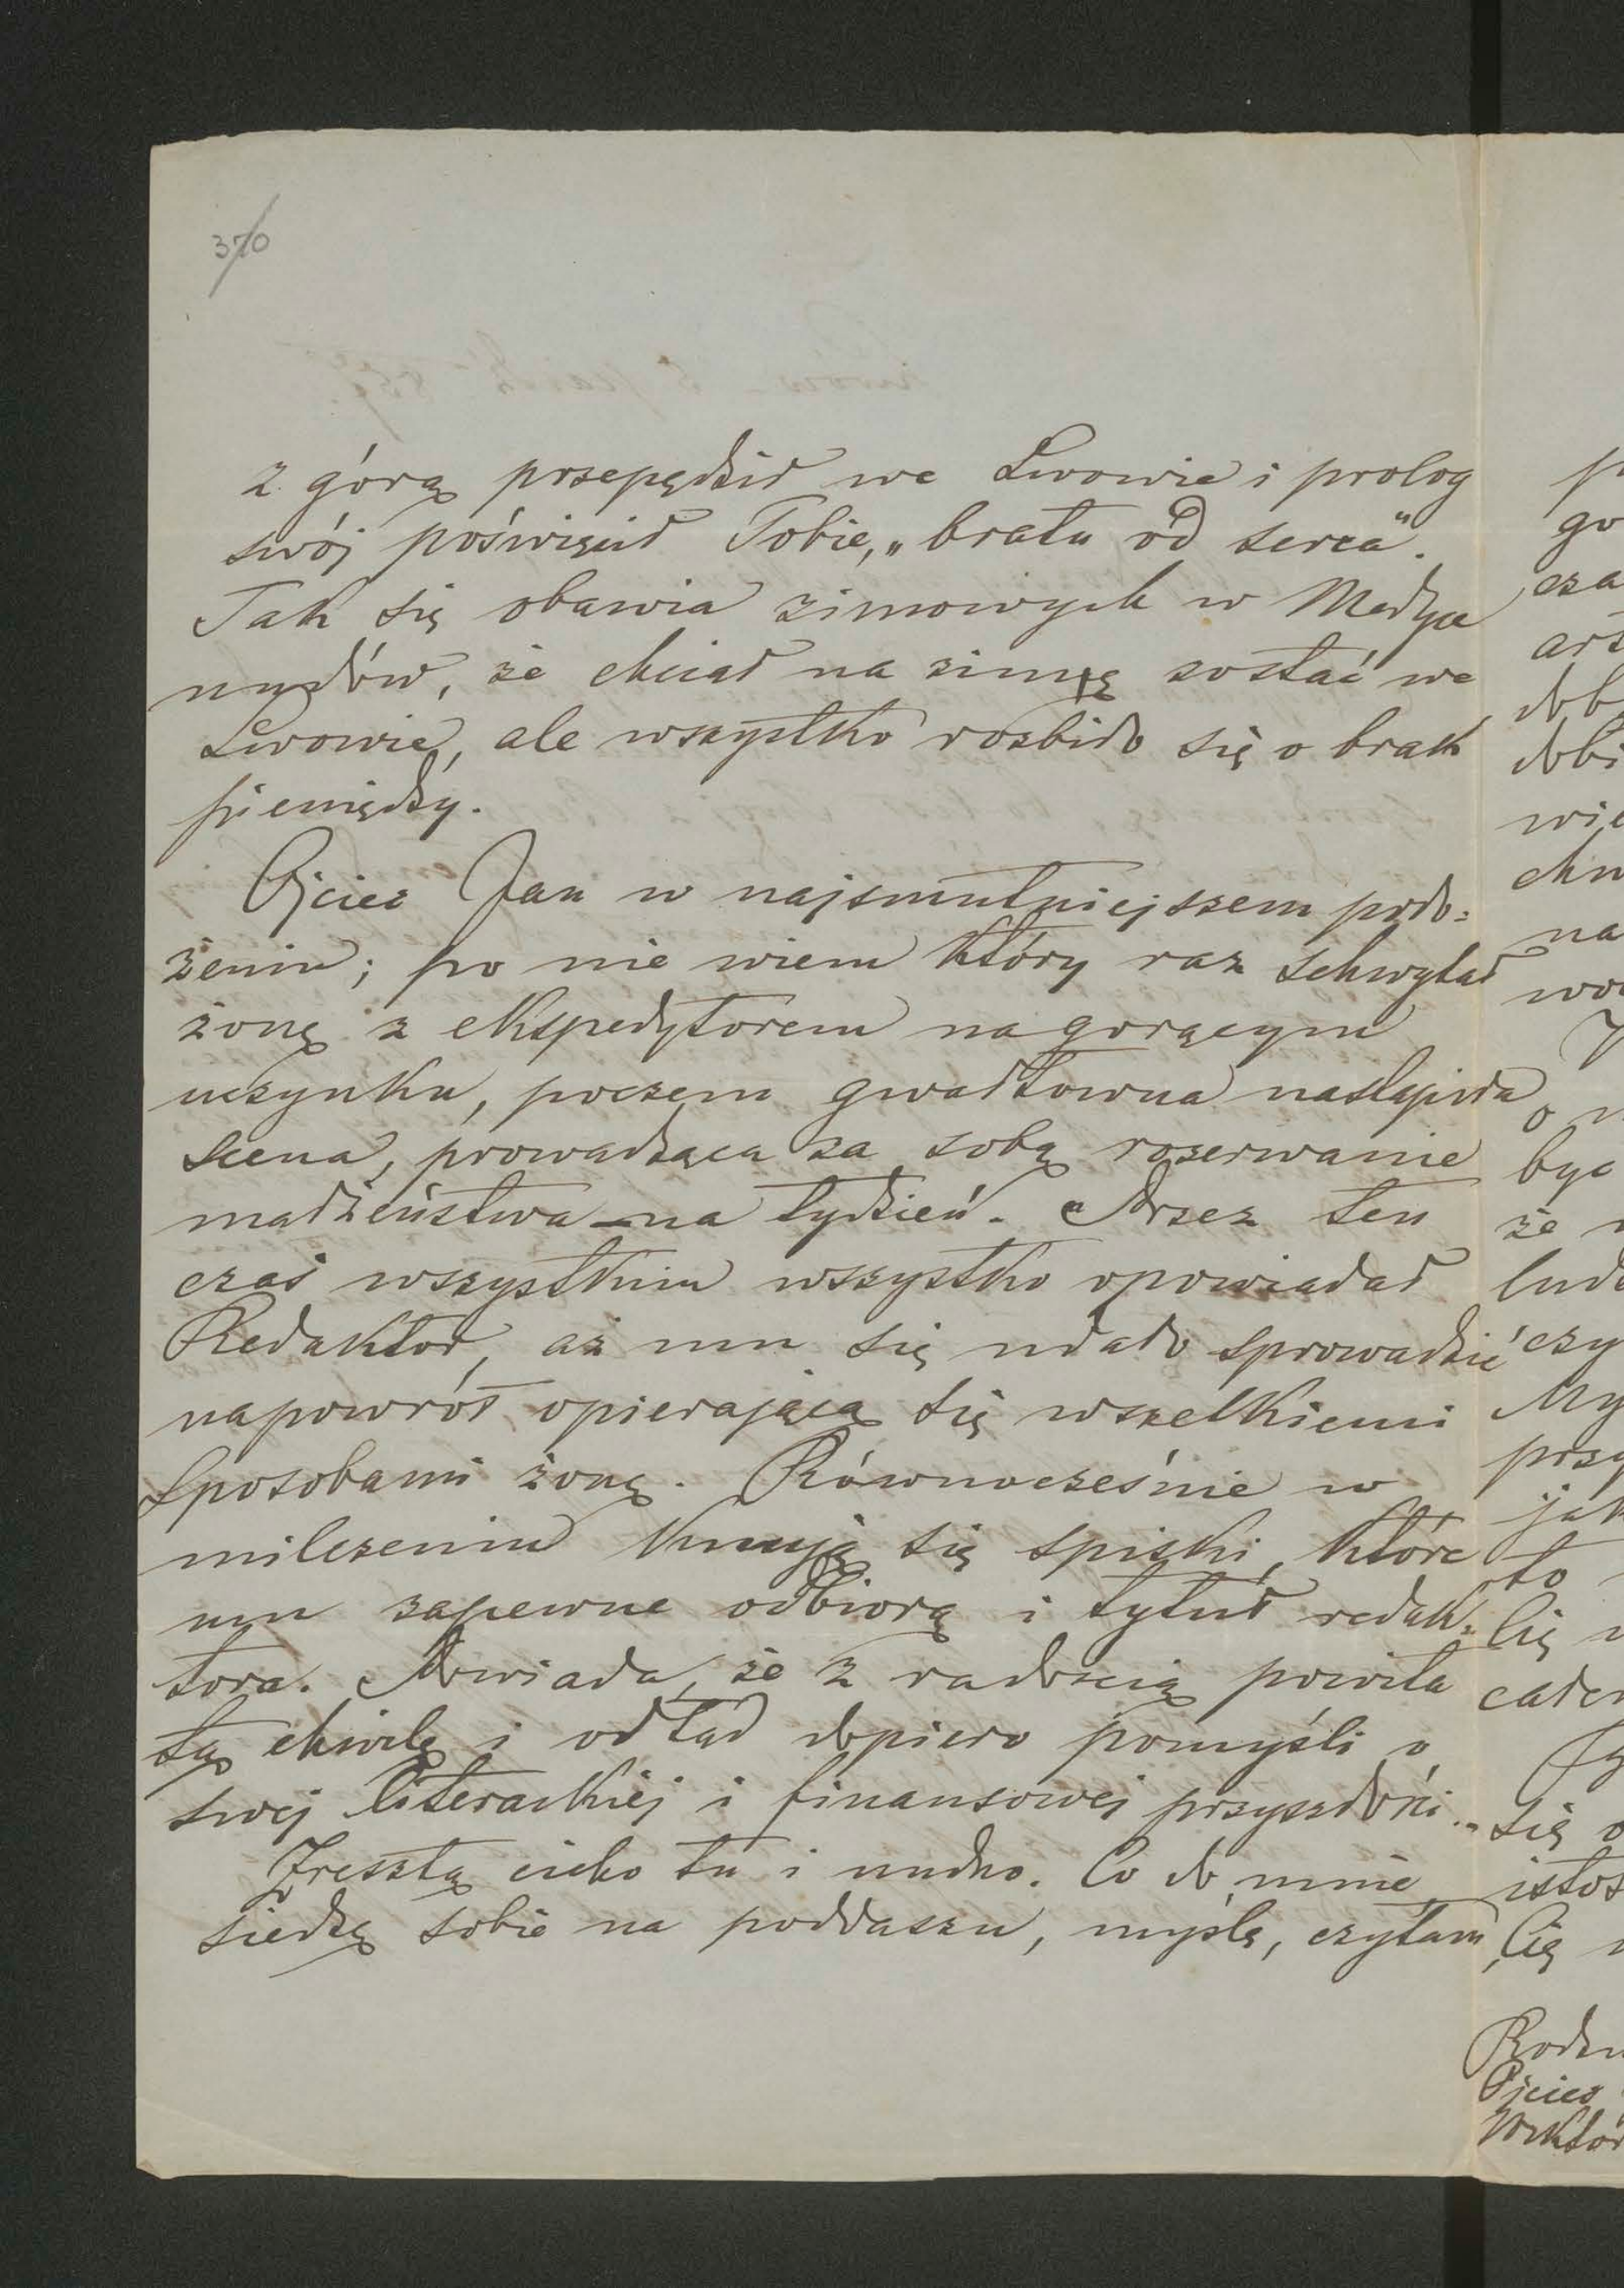 370
z górą przepędził we Lwowie i prolog
swój poświęcił Tobie, „bratu od serca".
Tak się obawia zimowych w Medyce
nudów, że chciał na zimę zostać we
Lwowie, ale wszystko rozbiło się o brak
pieniędzy.
Ojciec Jan w najsmutniejszem poło=
żeniu; po nie wiem który raz schwytał
żonę z ekspedytorem na gorącym
uczynku, poczem gwałtowna nastąpiła
scena, prowadząca za sobą rozerwanie
małżeństwa – na tydzień. Przez ten
czas wszystkim wszystko opowiadał
Redaktor, aż mu się udało sprowadzić
napowrót opierającą się wszelkiemi
sposobami żonę. Równocześnie w
milczeniu knują się spiski, które
mu zapewne odbiorą i tytuł redak=
tora. Powiada, że z radością powita
tę chwilę i odtąd dopiero pomyśli o
swej literackiej i finansowej przyszłości..
Zresztą cicho tu i nudno. Co do mnie
siedzę sobie na poddaszu, myślę, czytam,
go
cza
dob
wie
na
być
że
czy
My
przy
jak
to
Cię
się o
Cię
Ojciec